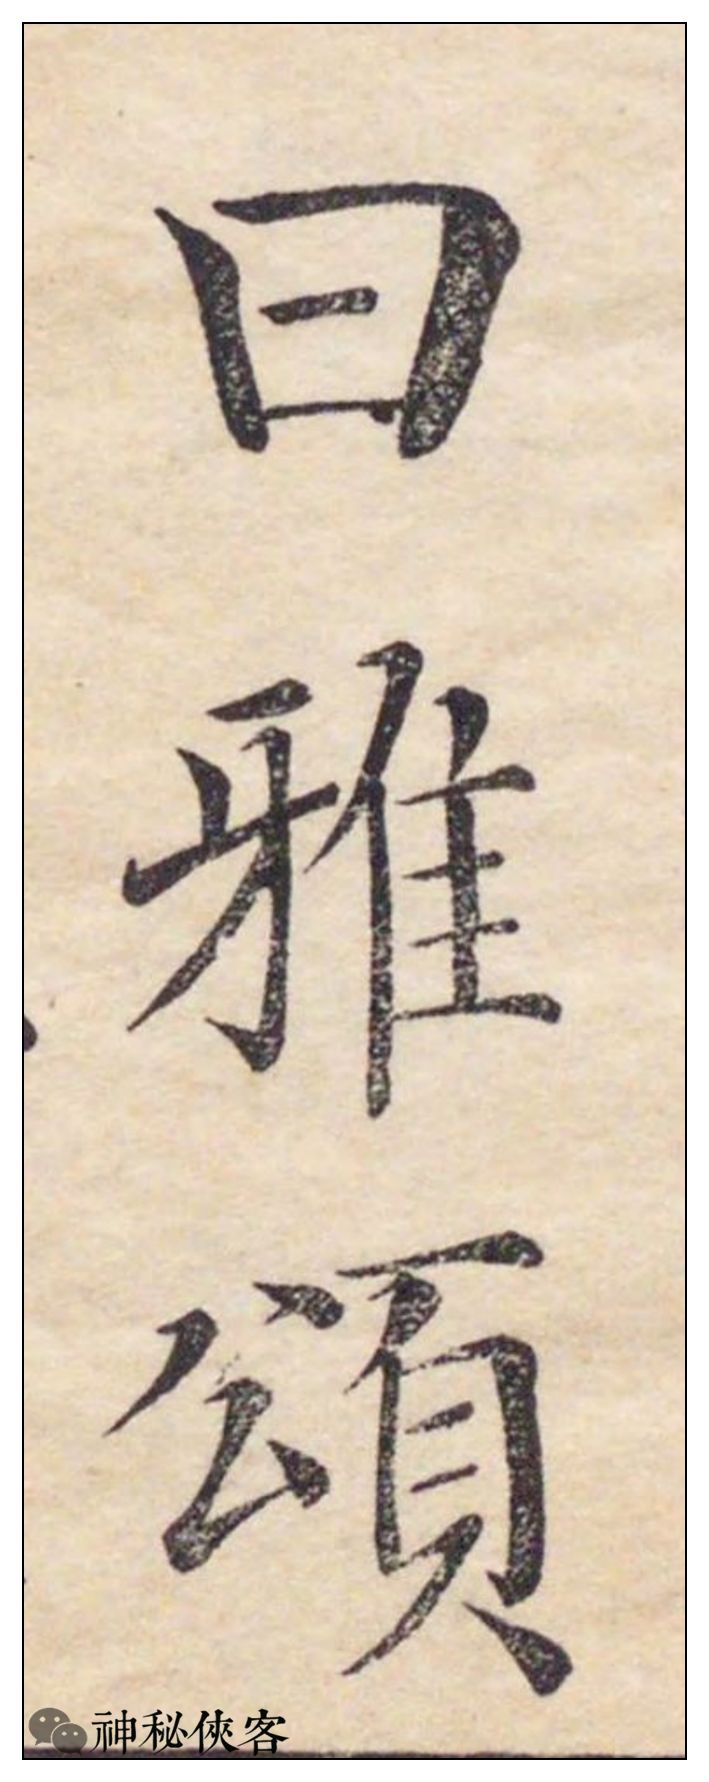 曰雅頌
神秘俠客